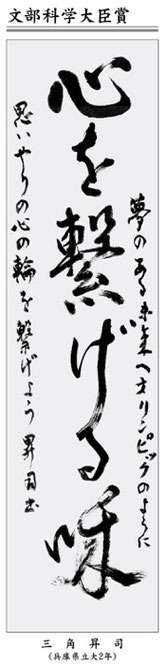 文部科学大臣賞
夢のある未来へオリンピックのように
心を繋げる味
思いやりの心の輪を繋げよう 昇司書
三角昇司
(兵庫県立大2年)